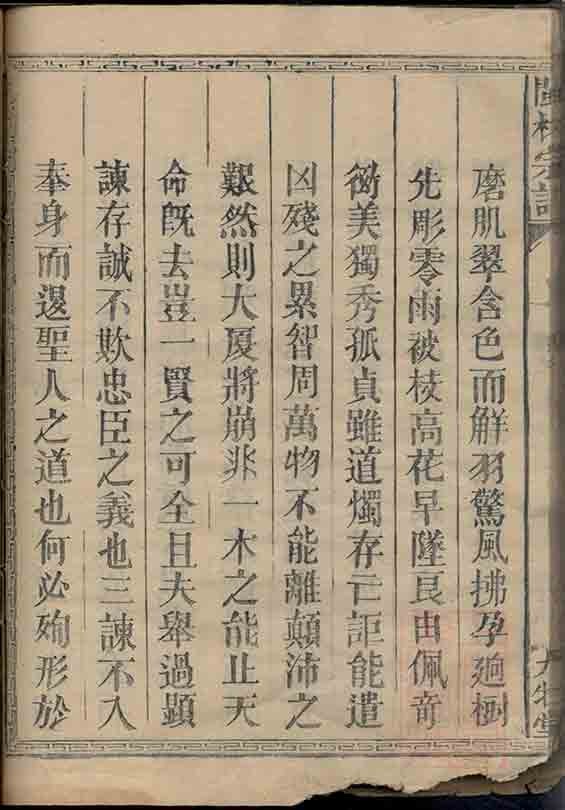 林宗譜
磨肌翠含色而解羽驚風拂孕迥樹
先彫零雨被棱高花早墜良由佩奇
衒美獨秀孤貞雖道燭存亡詎能遣
凶殘之累智周萬物不能離顛沛之
艱然則大厦將崩非一木之能止天
命旣去豈一賢之可全且夫舉過顯
諫存誠不欺忠臣之義也三諫不入
奉身而退聖人之道也何必殉形於